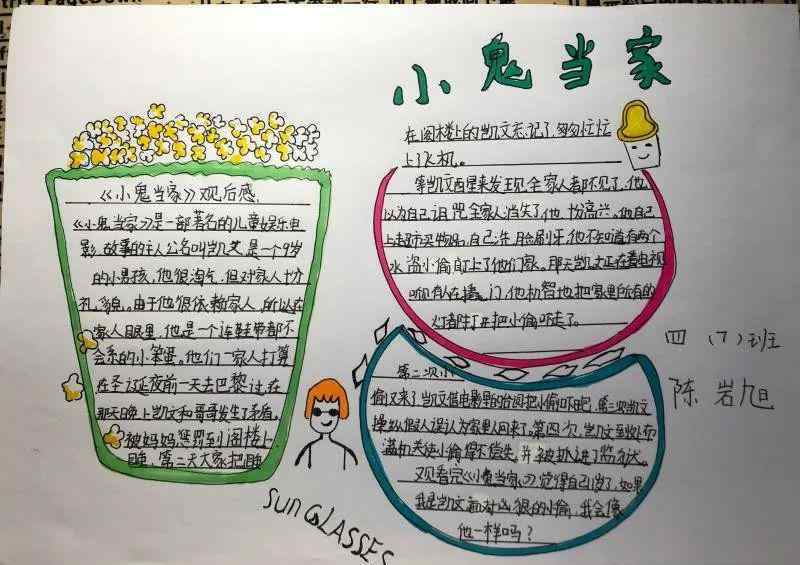 小鬼当家
《小鬼当家》观后感.
《小鬼当家》是一部著名的儿童娱乐电
影.故事的主人公名叫凯文.是一个9岁
的小男孩,他很淘气,但对家人十分
礼貌。由于他很依赖家人,所以在
家人眼里,他是一个连鞋带都不
会系的小笨蛋。他们一家人打算
在圣诞夜前一天去巴黎,在
那天晚上凯文和哥哥发生了矛盾,
被妈妈惩罚到阁楼上
睡,第二天大家把睡
在阁楼上的凯文忘记了,匆匆忙忙
上了飞机。
第凯文醒来发现全家人都不见了,他
以为自己诅咒全家人消失了他十分高兴。他自己
上超市买物品,自己洗脸刷牙,他不知道有两个
小偷盯上了他们家。那天凯文正在看电视
听见有人在撬门,他机智地把家里所有的
灯都打开把小偷吓走了。
第二次小
偷又来了,凯文借电影里的台词把小偷吓跑,第三次凯文
操纵假人误认为家里人回来了,第四次,凯文到处布
满机关使小偷得不偿失,并被抓进了监狱。
观看完《小鬼当家》觉得自己
我是凯文面对凶狠的小偷,我会像
他一样吗?
四(7)班
陈岩旭
SUNGLASSES